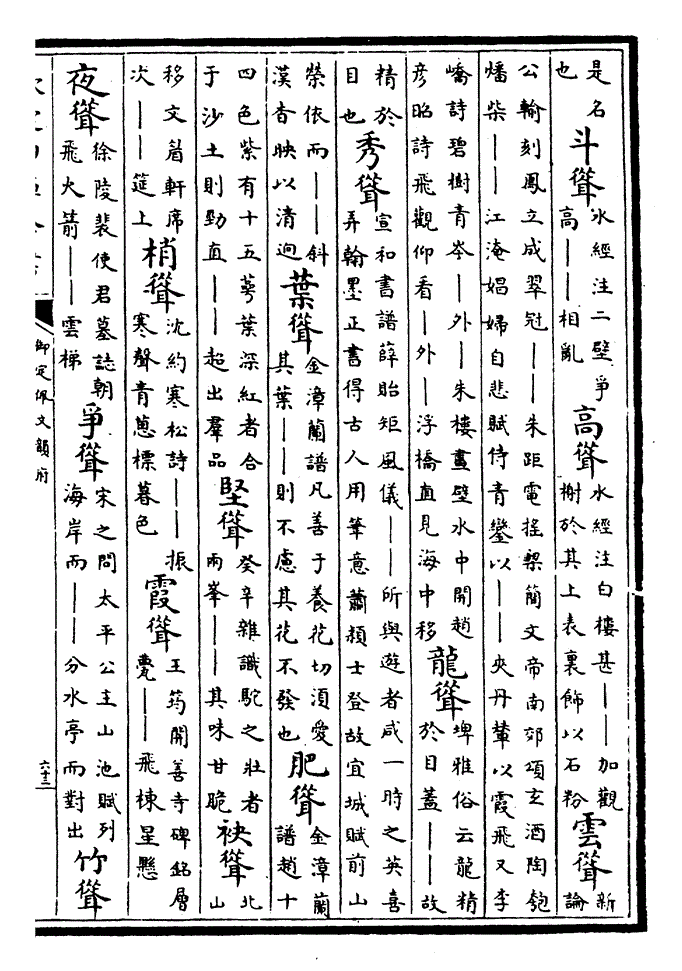 是名也斗聳水經注二壁爭高——相亂高聳水經注白樓甚——加觀榭於其上表裏飾以石粉雲聳新論
公輸刻鳳立成翠冠——朱距電搖梁簡文帝南郊頌玄酒陶匏燔柴——江淹娼婦自悲賦侍青鑾以——夾丹輦以霞飛又李
嶠詩碧樹青岑—外—朱樓畫壁水中開趙彥昭詩飛觀仰看—外—浮橋直見海中移龍聳埤雅俗云龍精於目蓋——故
精於目也秀聳宣和書譜薛貽矩風儀——所與遊者咸一時之英喜弄翰墨正書得古人用筆意蕭頴士登故宜城賦前山
榮依而——斜漢杳映以清迥葉聳金漳蘭譜凡善于養花切須愛其葉——則不慮其花不發也肥聳金漳蘭譜趙十
四色紫有十五萼葉深紅者合于沙土則勁直——超出羣品堅聳癸辛雜識駝之壯者兩峯——其味甘脆袂聳北山
移文眉軒席次——筵上梢聳沈約寒松詩——振寒聲青蔥標暮色霞聳王筠開善寺碑銘層甍——飛棟星懸
夜聳徐陵裴使君墓誌朝飛火箭——雲梯爭聳宋之問太平公主山池賦列海岸而——分水亭而對出竹聳
御定佩文韻府
六十三